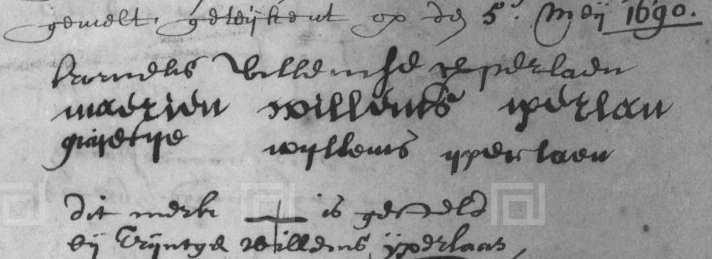 gemelt, geteijkent op den 5.' Meij 1690.
kornelis Willemse yperlaen
maerten willems iperlan
grietye wyllems yperlaen
dit merk is gestelt
bij Trijntge Willems ijperlaar,